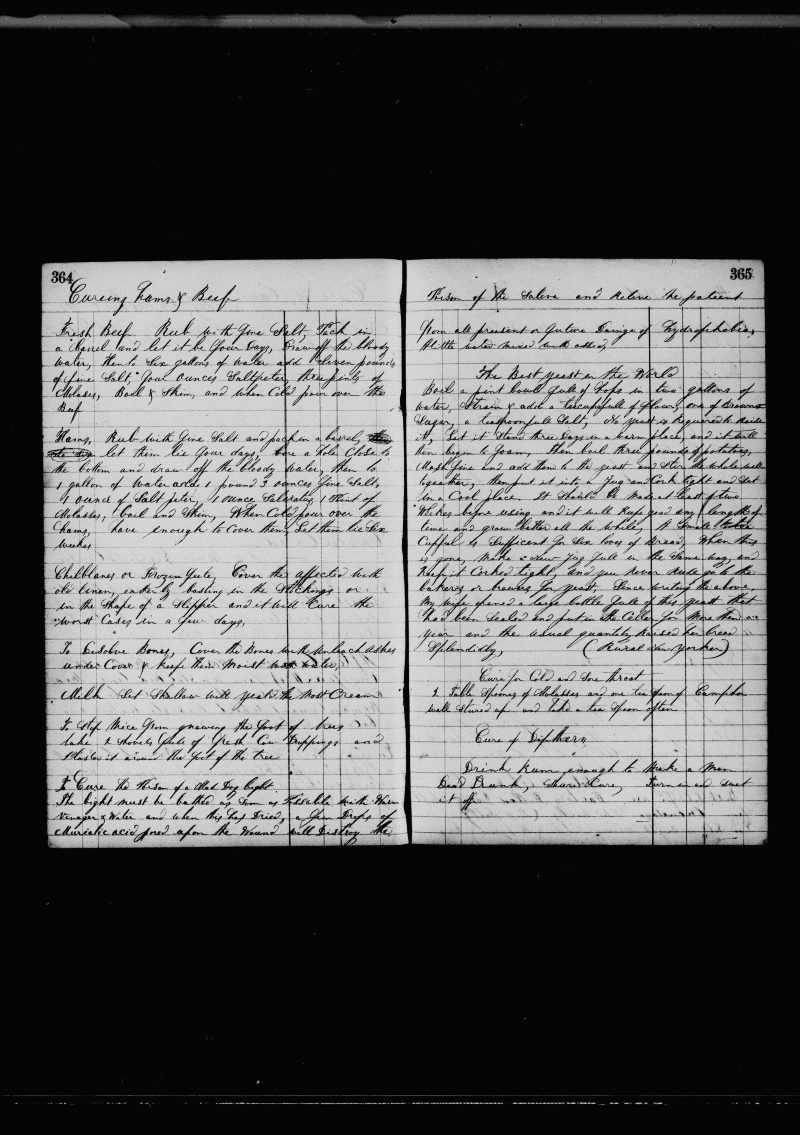 364
Cureing hams & Beef
Fresh Beef Rub with fine Salt, Pack in
a barrel and let it lie four Days, Draw off the bloody
water, then to Six gallons of water add Seven pounds
of fine Salt, four ounces Saltpeter, three pints of
Molases, Boil & Skim, and when Cold pour over the
Beef
Hams, Rub with fine Salt and pack in a barrel,
let them lie four days, bore a hole Close to
the bottom and draw off the bloody water, then to
1 gallon of water add 1 pound 3 ounces fine Salt,
1 ounce of Salt peter, 1 ounce Saleratus, 1 Pint of
Molasses, boil and Skim, When Cold pour over the
hams, have enough to Cover them, Let them lie Six
weekes
Chilblanes or frozen feete, Cover the affected with
old linen, eather by basting in the Stockings or
in the Shape of a Slipper and it will Cure the
worst Cases in a few days,
To Desolve Bones, Cover the Bones with Unleach Ashes
under Cover & keep them Moist with water,
Milk Set Shallow will yeald the Most Cream
To Stop Mice from gnawing the foot of trees
take 2 Shovels fule of fresh Cow Droppings and
Plaster it around the foot of the tree
To Cure the Poison of a Mad Dog bight.
The bight must be bathed as Soon as Possable with Warm
Vinager & Water and when this has Dried, a few Drops of
Muriatic acid pored upon the Wound will Destroy the
365
Poison of the Saliva and relive the patient
from all present or future Dainger of Hydrophobia,
A little water mixed with asked,
The Best yeast in the World
Boil a pint bowl fule of hops in two gallons of
water, Strain & add a teacupfull of flour, one of Brown
Sugar, a teaspoonfull Salt, No yeast is Required to Raise
it, Let it Stand three days in a warm place, and it will
then begin to foam, Then boil three pounds of potatoes,
Mash fine and add them to the yeast and Stir the whole well
together, then put it into a Jug and Cork tight and Set
in a Cool place. It Should be Made at least two
Weekes before using and it will keep good any length of
time and grow better all the while, A Small
Cupful is Sufficent for Six loves of Bread, When this
is gone, Make a New Jug full in the Same way, and
Keep it Corked tight and you never need go to the
bakers or brewers for yeast, Since writing the above
My wife opened a large bottle full of this yeast that
had been Sealed and put in the Celler for More than a
year and the usual quantity Raised her bread
Splendidly, (Rural New Yorker)
Cure for Cold and Sore throat
2 Table Spoons of Molasses and one tea Spoon of Camphor
well Stured up and take a tea Spoon often
Cure of Diptheria
Drink Rum, enough to Make a Man
Dead Drunk, Share Shure, turn in and Swet
it off